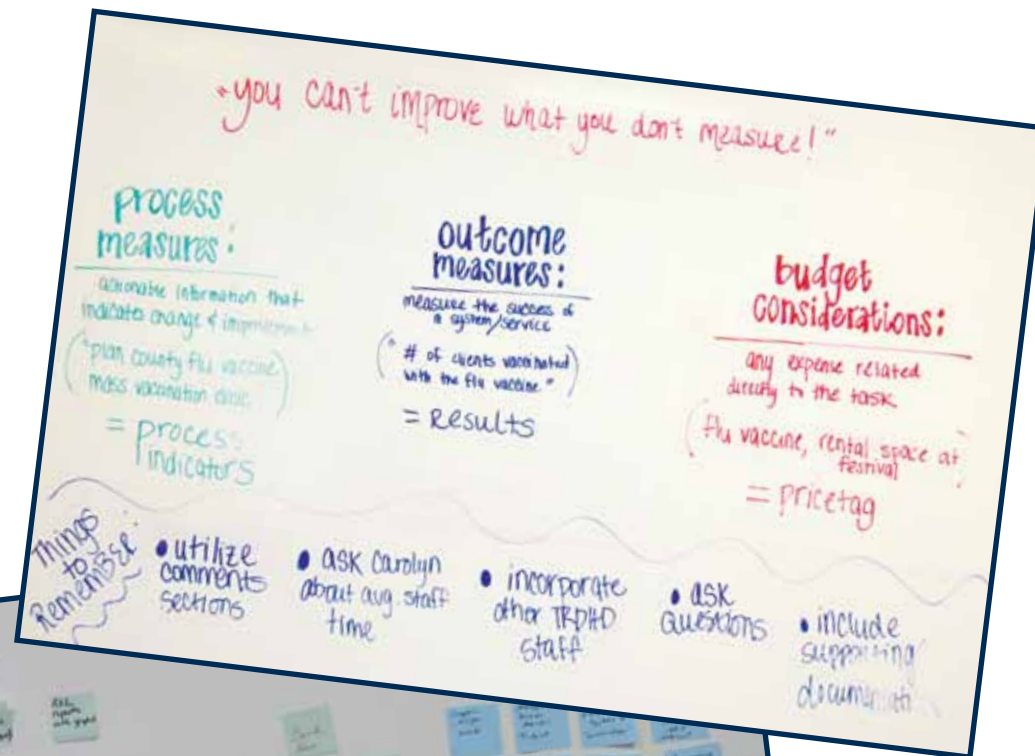 "you can't improve what you don't measure!"
process
measures:
actionable information that
indicates change & improvement
("plan county flu vaccine)
mass vaccination clinic
= process
indicators
outcome
measures:
measure the success of
a system/service
(" # of clients vaccinated)
with the flu vaccine "
= Results
budget
considerations:
any expense related
directly to the task
(flu vaccine, rental space at
festival
= pricetag
Things
to
Remember:
• utilize
comments
sections
• ask Carolyn
about avg. staff
time
• incorporate
other TRDHD
staff
• ask
questions
• include
supporting